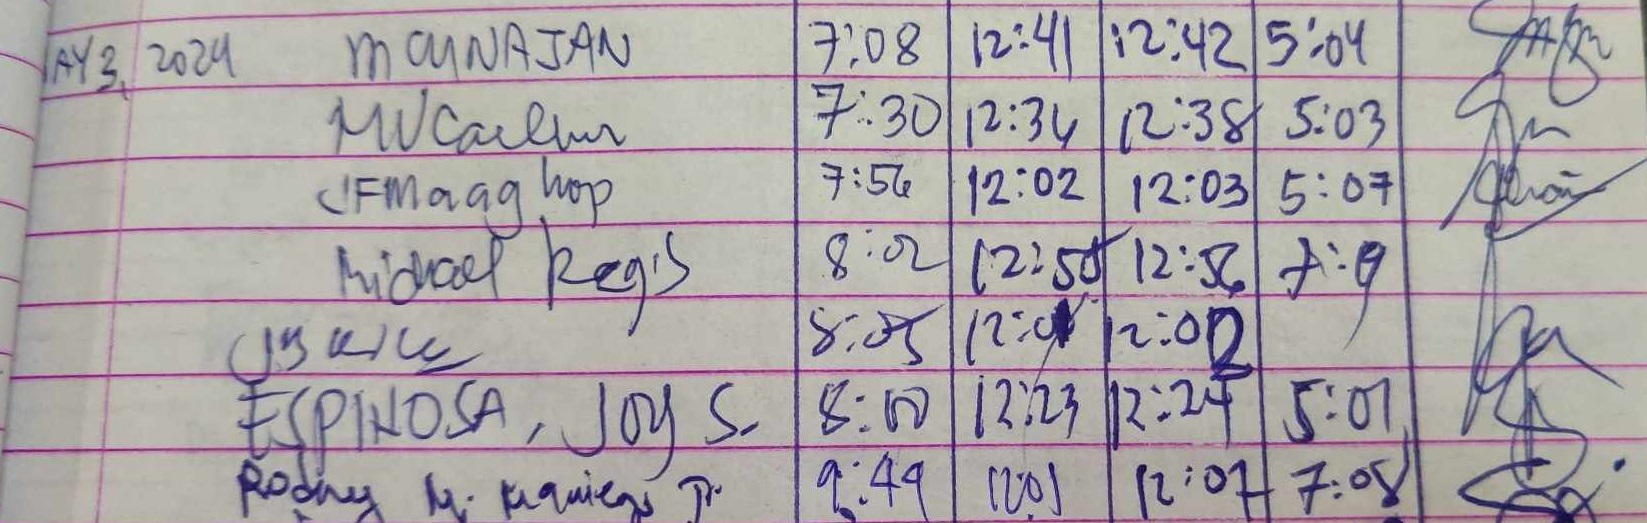 AY 3, 2024 MCUNAJAN 7:08 12:41 12:42 5:04
7:30 12:34 12:38 5:03
JFMaaghop 7:56 12:02 12:03 5:07
Michael Regis 8:02 12:55 12:56 7:19
8:05 12:01 12:02
ESPINOSA, JOY S. 8:10 12:23 12:24 5:01
Rodney M. Jr. 9:49 1201 12:07 7:08